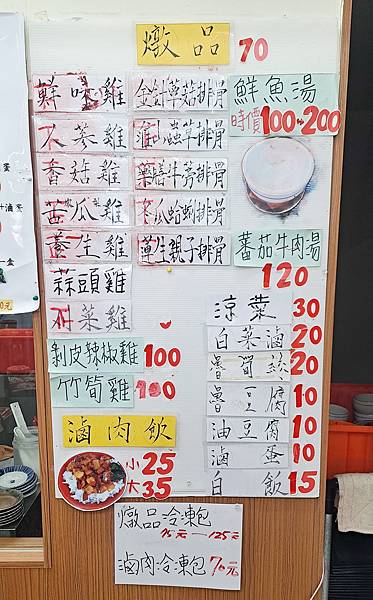 燉品 70
鮮味雞
人蔘雞
香菇雞
苦瓜雞
養生雞
蒜頭雞
菜雞
剝皮辣椒雞 100
竹筍雞 100
金針草菇排骨
蟲草排骨
藥膳牛蒡排骨
冬瓜蛤蜊排骨
草生親子排骨
鮮魚湯
時價 100~200
蕃茄牛肉湯
120
涼菜 30
白菜滷 20
魯筍絲 20
魯豆腐 10
油豆腐 10
滷蛋 10
白飯 15
滷肉飲
小 25
大 35
燉品冷凍包
95元—125元
滷肉冷凍包 70元